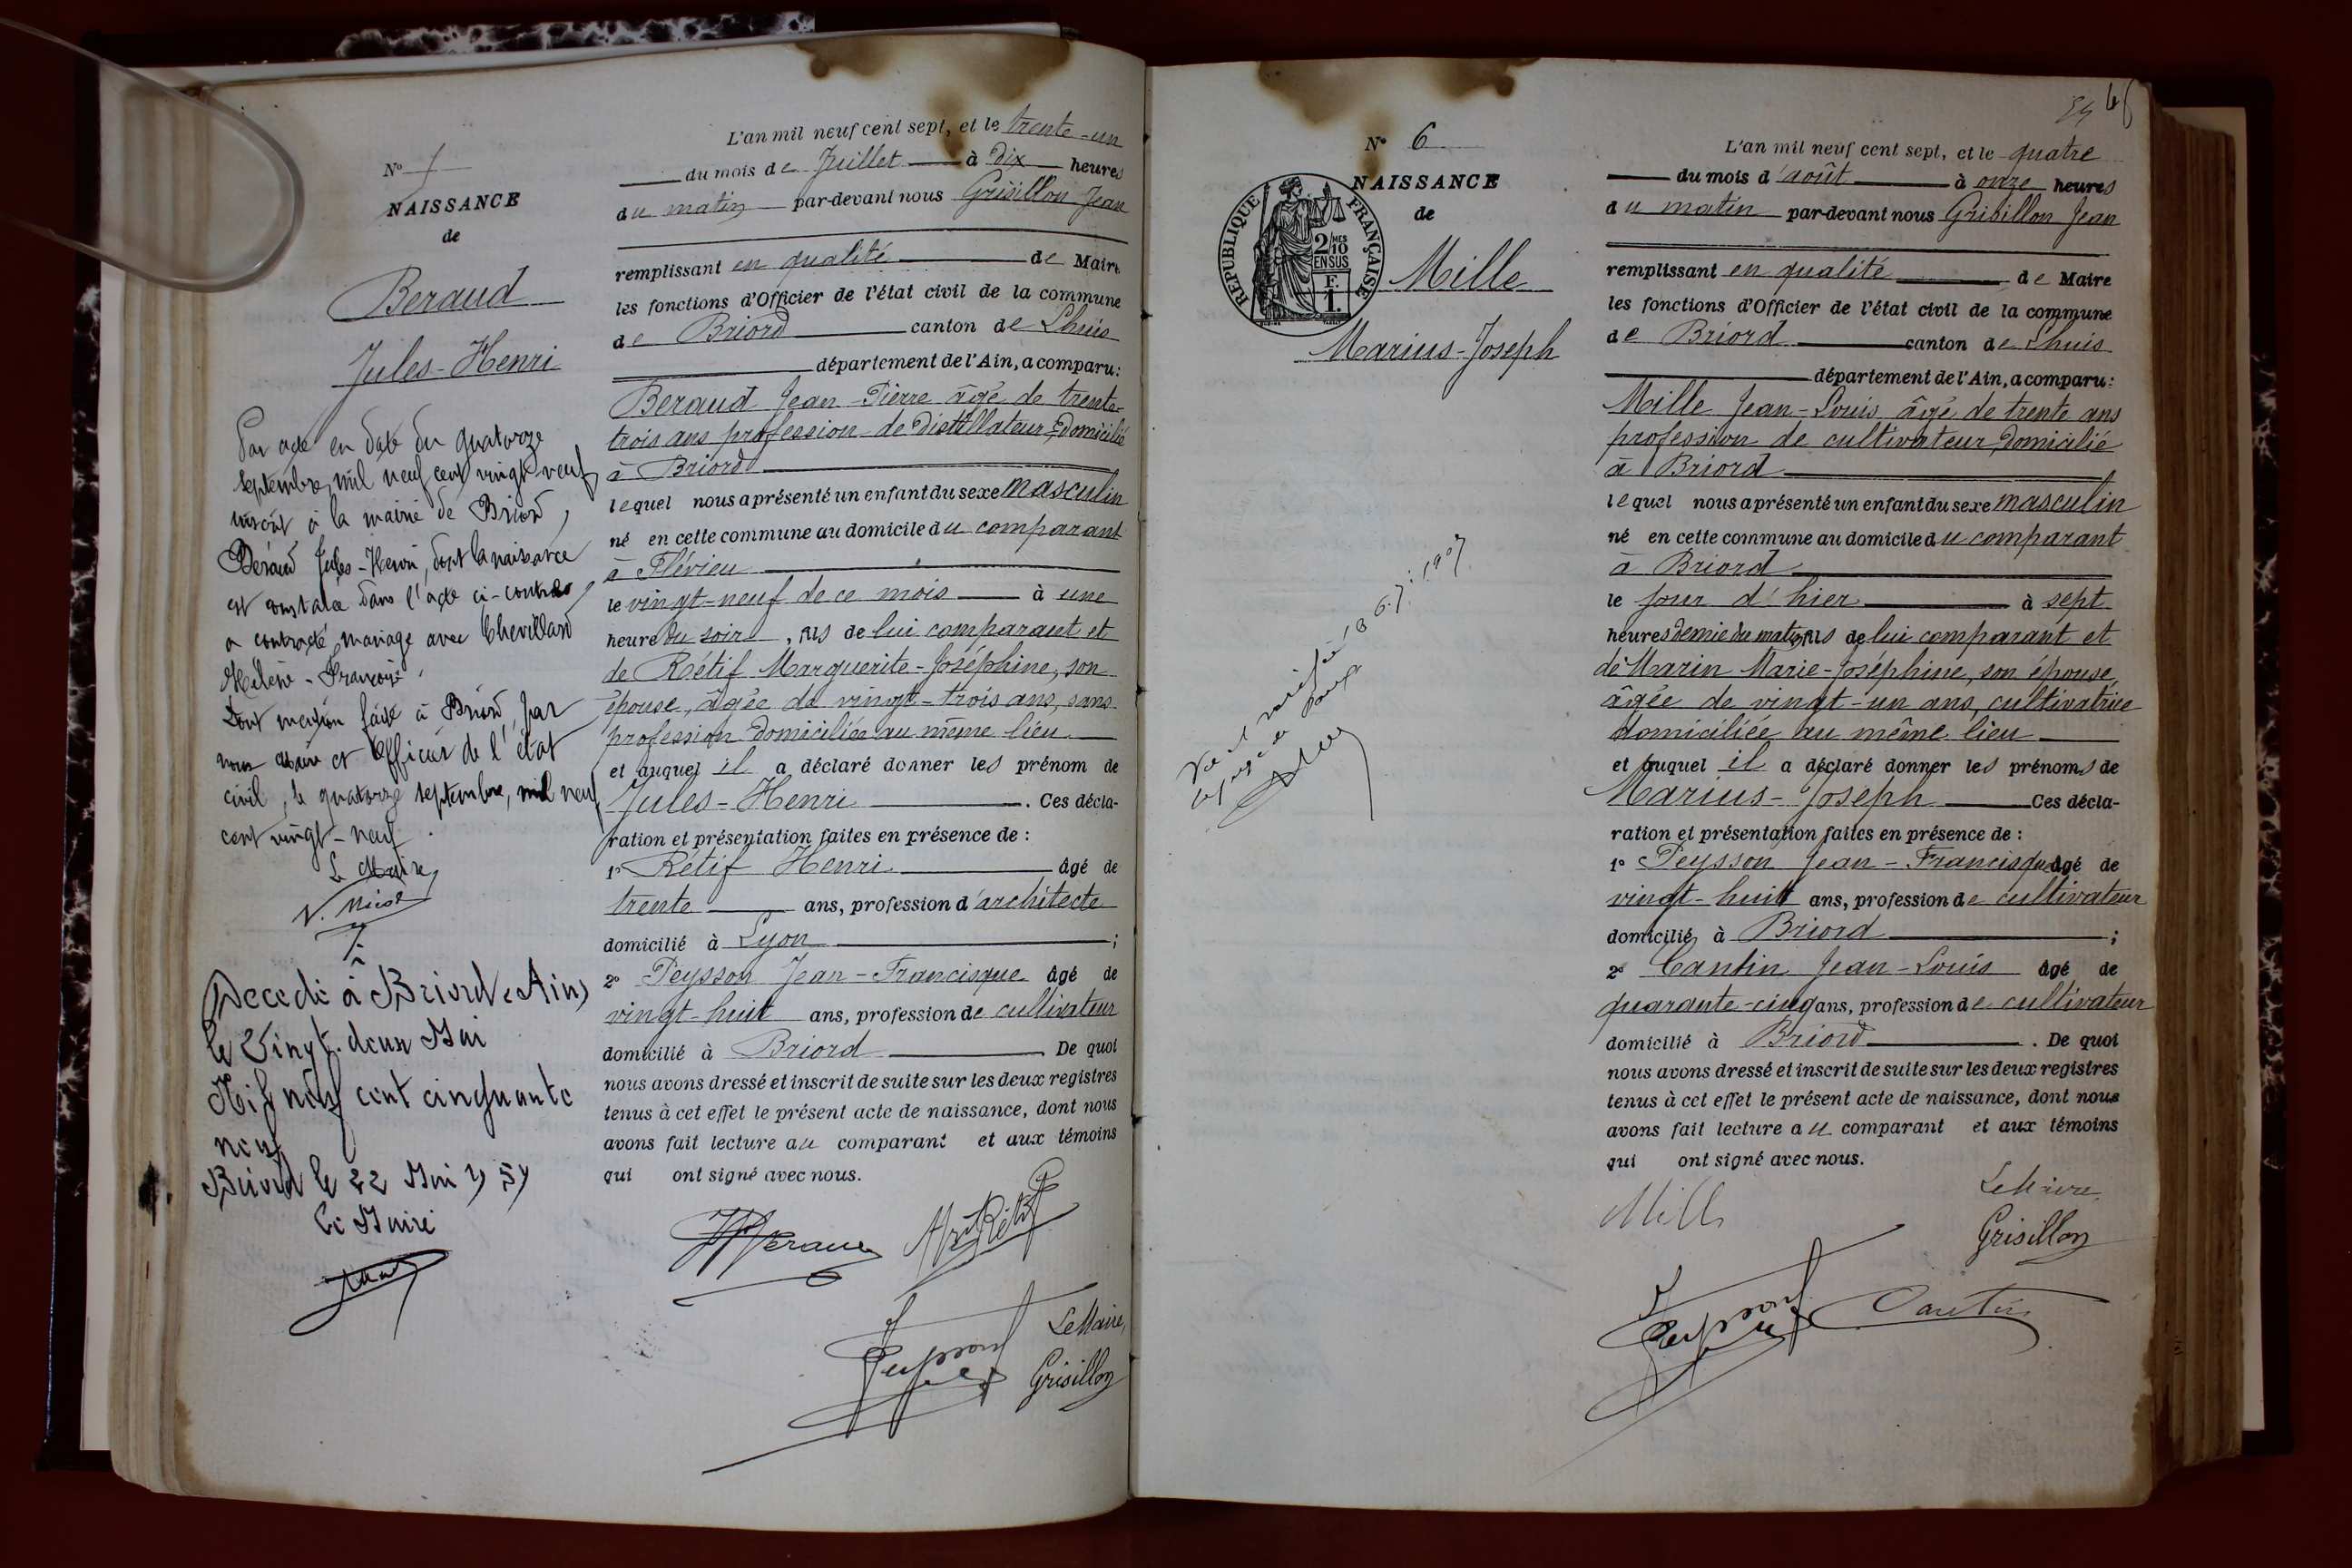 N°
NAISSANCE
de
Beraud
Jules-Henri
Par acte en date du quatorze
septembre, mil neuf cent vingt-neuf
inscrit à la mairie de Briord,
Béraud Jules-Henri, dont la naissance
est constatée dans l'acte ci-contre
a contracté mariage avec Chevillard
Hélène-Françoise,
Dont mention faite à Briord, par
nous Maire et Officier de l'état
civil, le quatorze septembre, mil neuf
cent vingt-neuf.
Le Maire,
Décédé à Briord (Ain)
le Vingt-deux Mai
Mil neuf cent cinquante
neuf
Briord le 22 Mai 1959
Le Maire
L'an mil neuf cent sept, et le trente-un
du mois de Juillet à Dix heures
du matin par-devant nous Grisillon Jean
remplissant en qualité de Maire
les fonctions d'Officier de l'état civil de la commune
de Briord canton de Lhuis
département de l'Ain, a comparu:
Beraud Jean-Pierre âgé de trente-
trois ans profession de Distillateur, domicilié
à Briord
lequel nous a présenté un enfant du sexe masculin
né en cette commune au domicile du comparant
à Flévieu
le vingt-neuf de ce mois à une
heure du soir, fils de lui comparant et
de Rétif Marguerite-Joséphine, son
épouse, âgée de vingt-trois ans, sans
profession domiciliée au même lieu
et auquel il a déclaré donner les prénom de
Jules-Henri. Ces décla-
ration et présentation faites en présence de :
1° Rétif Henri âgé de
trente ans, profession d'architecte
domicilié à Lyon ;
2° Peysson Jean-Francisque âgé de
vingt-huit ans, profession de cultivateur
domicilié à Briord De quoi
nous avons dressé et inscrit de suite sur les deux registres
tenus à cet effet le présent acte de naissance, dont nous
avons fait lecture au comparant et aux témoins
qui ont signé avec nous.
Le Maire,
Grisillon
N° 6
NAISSANCE
de
REPUBLIQUE FRANÇAISE
2/MES
10
EN SUS
F.
1.
Mille
Marius-Joseph
L'an mil neuf cent sept, et le quatre
du mois d'août à onze heures
du matin par-devant nous Grisillon Jean
remplissant en qualité de Maire
les fonctions d'Officier de l'état civil de la commune
de Briord canton de Lhuis
département de l'Ain, a comparu:
Mille Jean-Louis âgé de trente ans
profession de cultivateur, domicilié
à Briord
lequel nous a présenté un enfant du sexe masculin
né en cette commune au domicile du comparant
à Briord
le jour d'hier à sept
heures demie du matin, fils de lui comparant et
de Marin Marie-Joséphine, son épouse,
âgée de vingt-un ans, cultivatrice
domiciliée au même lieu
et auquel il a déclaré donner les prénoms de
Marius-Joseph Ces décla-
ration et présentation faites en présence de :
1° Peysson Jean-Francisque âgé de
vingt-huit ans, profession de cultivateur
domicilié à Briord ;
2° Cantin Jean-Louis âgé de
quarante-cinq ans, profession de cultivateur
domicilié à Briord. De quoi
nous avons dressé et inscrit de suite sur les deux registres
tenus à cet effet le présent acte de naissance, dont nous
avons fait lecture au comparant et aux témoins
qui ont signé avec nous.
Mille
Le Maire,
Grisillon
Cantin